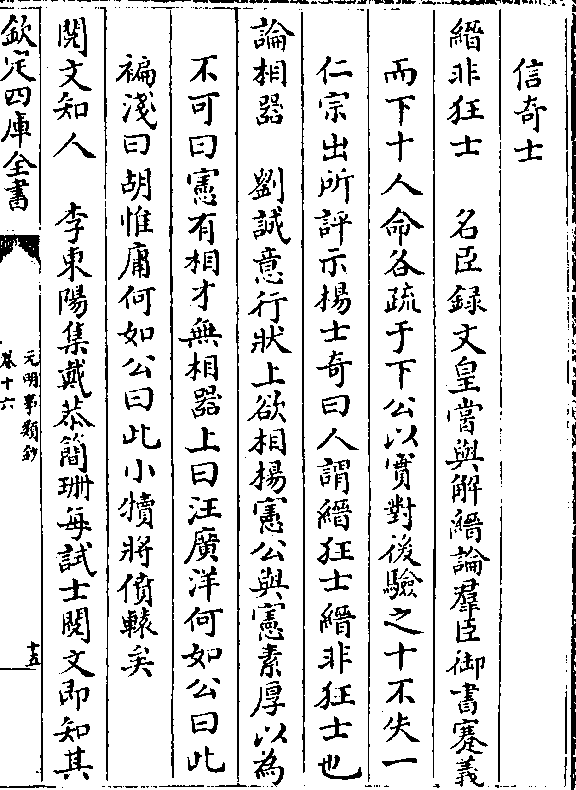 信奇士
縉非狂士　名臣録文皇嘗與解縉論羣臣御書蹇義
而下十人命各疏于下公以實對後驗之十不失一
仁宗出所評示楊士奇曰人謂縉狂士縉非狂士也
論相器　劉誠意行狀上欲相揚憲公與憲素厚以為
不可曰憲有相才無相器上曰汪廣洋何如公曰此
褊淺曰胡惟庸何如公曰此小犢將僨轅矣
閱文知人　李東陽集戴恭簡珊每試士閱文即知其
欽定四庫全書
元明事類鈔
卷十六
十五